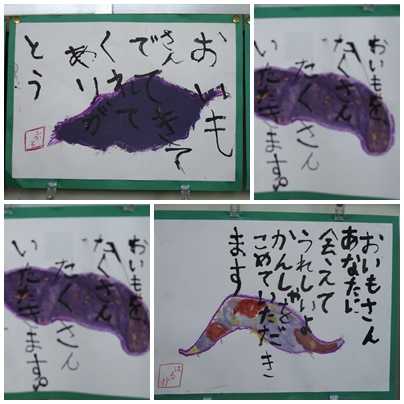 おいも
さん
でてきて
くれて
ありが
とう
おいもを
たくさん
たくさん
いただきます。
おいもを
たくさん
たくさん
いただきます。
おいもさん
あなたに
会えて
うれしいよ
かんしゃを
こめていただき
ます